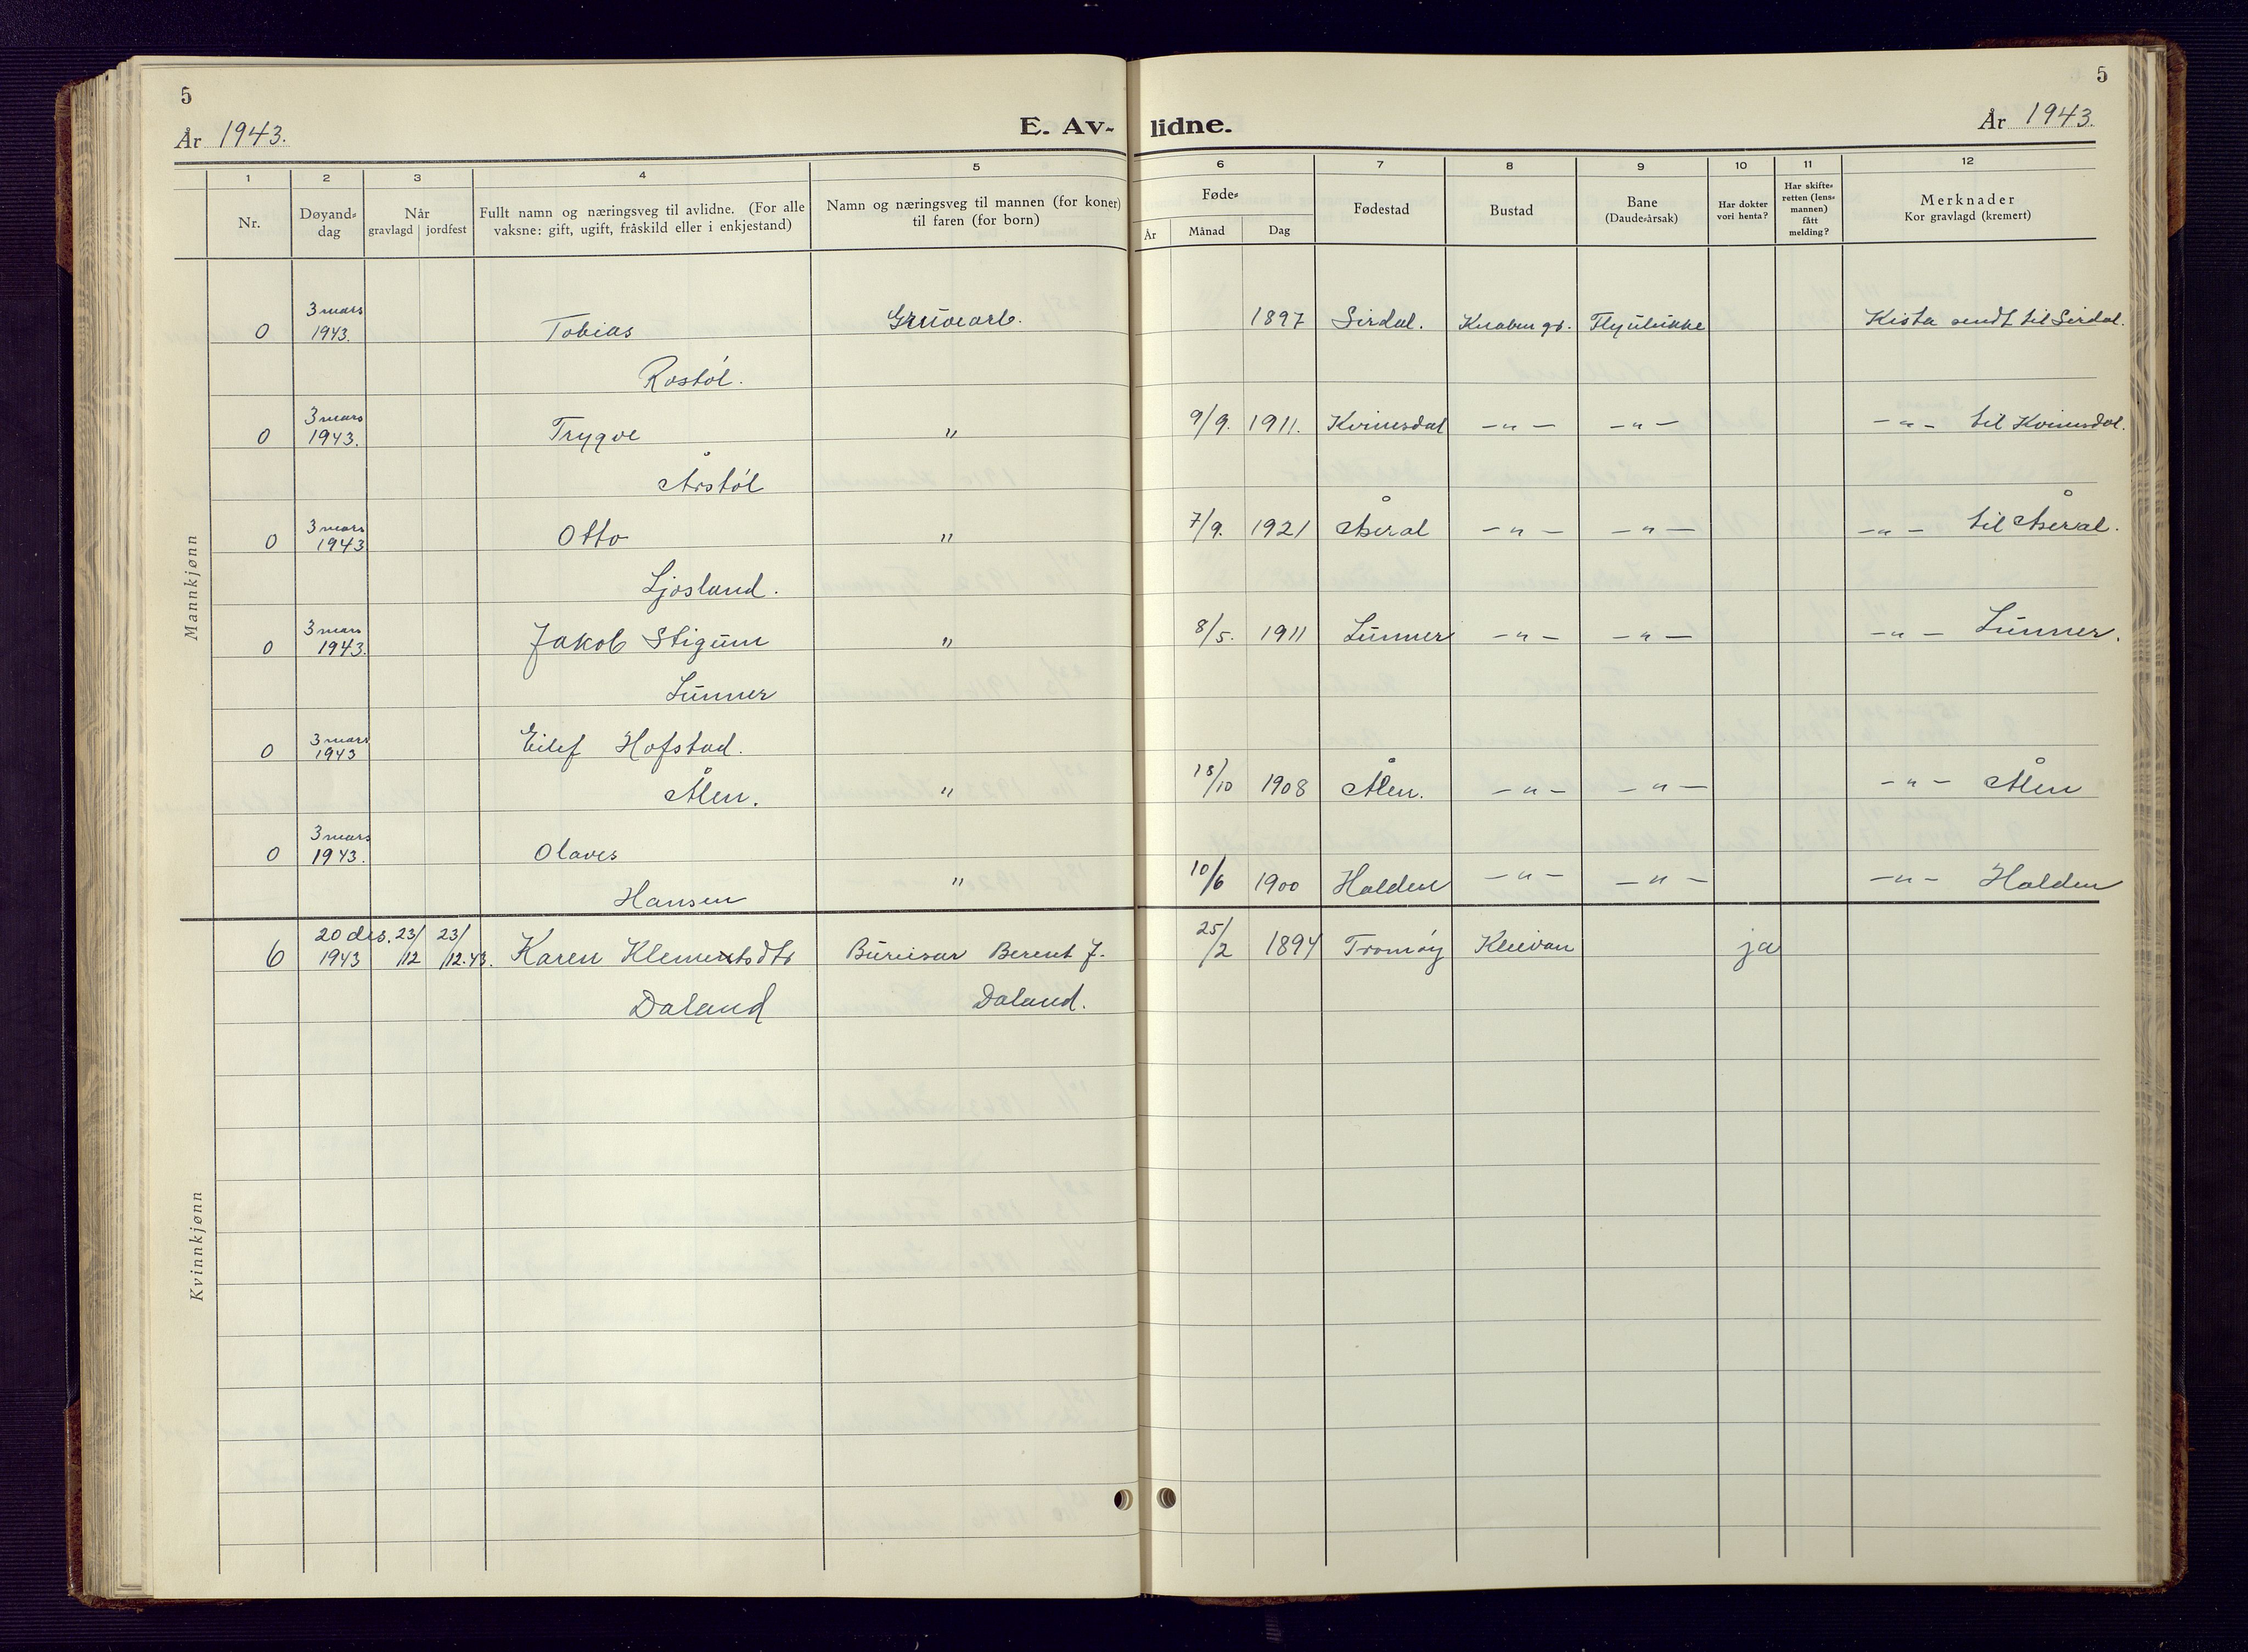 5
5
År 1943.
E. Av-
lidne.
År 1943.
1 2 3 4 5 6 7 8 9 10 11 12
Nr.
Døyand-
dag
Når
gravlagd jordfest
Fullt namn og næringsveg til avlidne. (For alle
vaksne: gift, ugift, fråskild eller i enkjestand)
Namn og næringsveg til mannen (for koner)
til faren (for born)
Føde-
År Månad Dag
Fødestad
Bustad
Bane
(Daude-årsak)
Har dokter
vori henta?
Har skifte-
retten (lens-
mannen)
fått
melding?
Merknader
Kor gravlagd (kremert)
Mannkjønn
3 mars
0 1943. Tobias Gruvearb. 1897 Sirdal. Knaben gr. Flyulukke Kista sendt til Sirdal.
Rostøl.
3 mars
0 1943. Trygve " 9/9. 1911. Kvinesdal -"- -"- -"- til Kvinesdal.
Årstøl
3 mars
0 1943 Otto " 7/9. 1921 Åseral -"- -"- -"- til Åseral.
Ljosland.
3 mars
0 1943. Jakob Stigum " 8/5. 1911 Lunner -"- -"- -"- Lunner.
Lunner
3 mars
0 1943 Eilef Hofstad.
Ålen. " 18/10 1908 Ålen. -"- -"- -"- Ålen
3 mars
0 1943. Olaves
Hansen " 10/6 1900 Halden -"- -"- -"- Halden
Kvinnkjønn
20 des. 23/ 23/ 25/
6 1943 /12 /12.43. Karen Klementsdtr Bureisar Berent J. /2 1894 Tromøy Kleivan ja
Daland Daland.